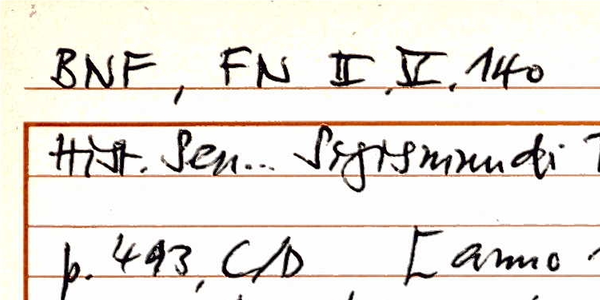 BNF, FN II.IV.140
Hist. Sen... Sigismundi
p. 493, C/D [anno